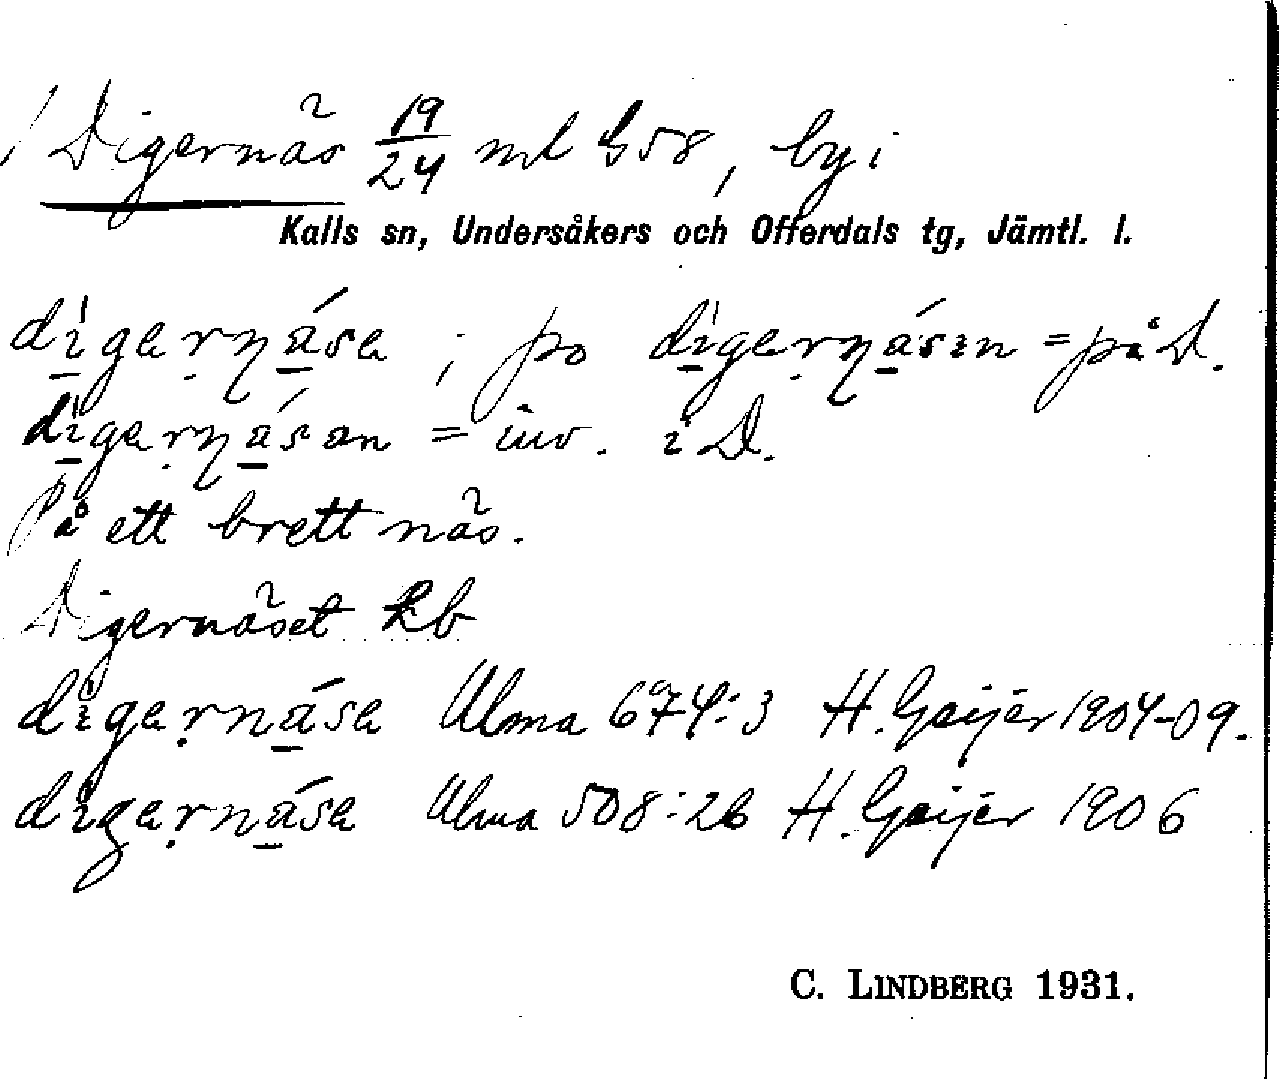 Digernäs 19/24 ml G58, by i
Kalls sn, Undersåkers och Offerdals tg, Jämtl. l.
digerṇása ; po digerṇásen = på D.
digerṇásan = inv. i D.
På ett brett näs.
Digernäset Rb
digernása Ulma 674:3 H. Geijer 1904-09.
digernása Ulma 508:26 H. Geijer 1906
C. LINDBERG 1931.